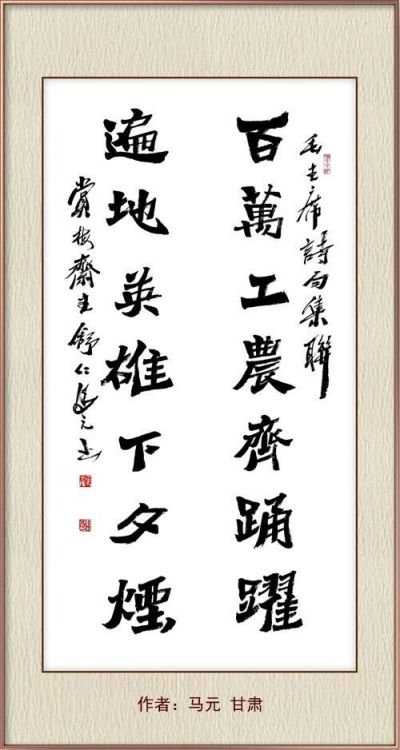 毛主席詩句集聯
百萬工農齊踊躍
遍地英雄下夕煙
賞梅齋主舒仁馬元書
作者：马元 甘肃